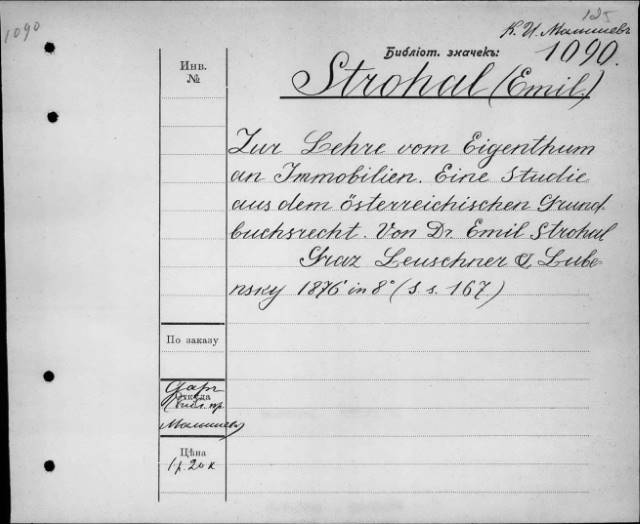 1090
125
К. И. Малышевъ
Библіот. значекъ:
1090.
Инв.
№
Strohal (Emil.)
Zur Lehre vom Eigenthum
an Immobilien. Eine Studie
aus dem österreichischen Grund
buchsrecht. Von Dr. Emil Strohal
Graz Leuschner & Lube
nsky 1876 in 8° (S s. 167.)
По заказу
Даръ
Откуда
библ. пр.
Малышев
Цѣна
1 р. 20 к